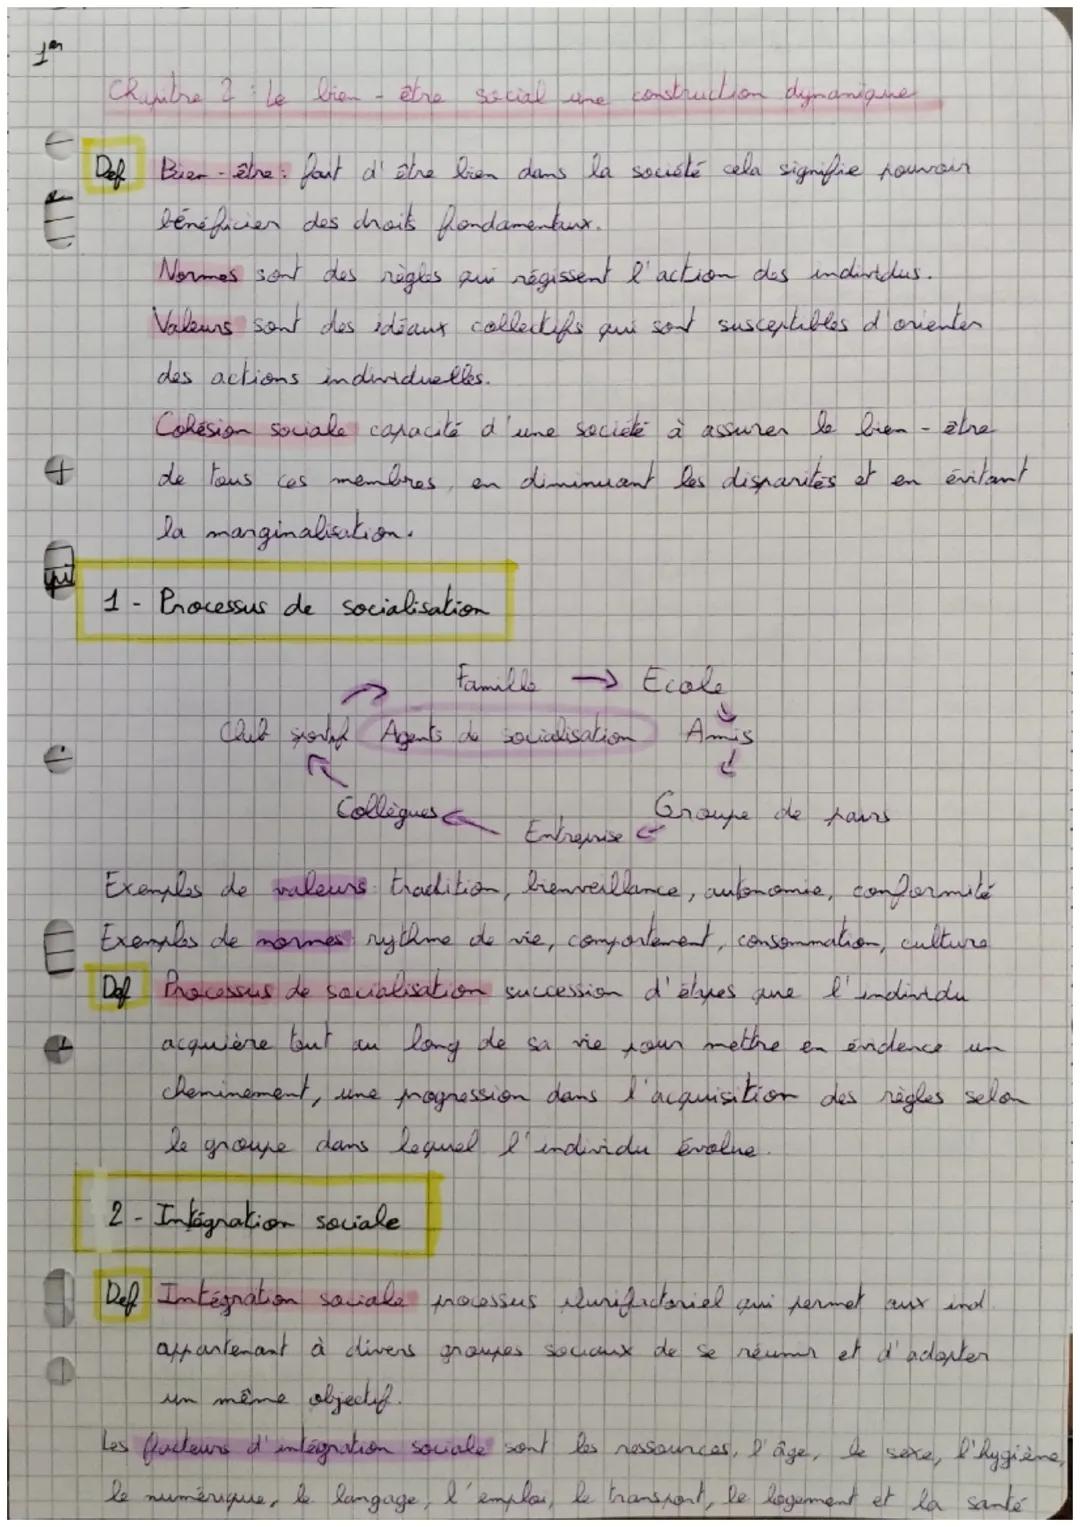 1er
Chapitre 2 : Le bien-être social une construction dynamique
Def Bien-être : fait d'être bien dans la société cela signifie pouvoir
bénéficier des droits fondamentaux.
Normes sont des règles qui régissent l'action des individus.
Valeurs sont des idéaux collectifs qui sont susceptibles d'orienter
des actions individuelles.
Cohésion sociale capacité d'une société à assurer le bien-être
de tous ces membres, en diminuant les disparités et en évitant
la marginalisation.
1 - Processus de socialisation
Famille → Ecole
Club sportif Agents de socialisation Amis
Collègues Groupe de pairs
Entreprise
Exemples de valeurs tradition, bienveillance, autonomie, conformité
Exemples de normes rythme de vie, comportement, consommation, culture
Def Processus de socialisation succession d'étapes que l'individu
acquière tout au long de sa vie pour mettre en évidence un
cheminement, une progression dans l'acquisition des règles selon
le groupe dans lequel l'individu évolue.
2 - Intégration sociale
Def Intégration sociale processus plurifactoriel qui permet aux ind
appartenant à divers groupes sociaux de se réunir et d'adopter
un même objectif.
Les facteurs d'intégration sociale sont les ressources, l'âge, le sexe, l'hygiène,
le numérique, le langage, l'emploi, le transport, le logement et la santé